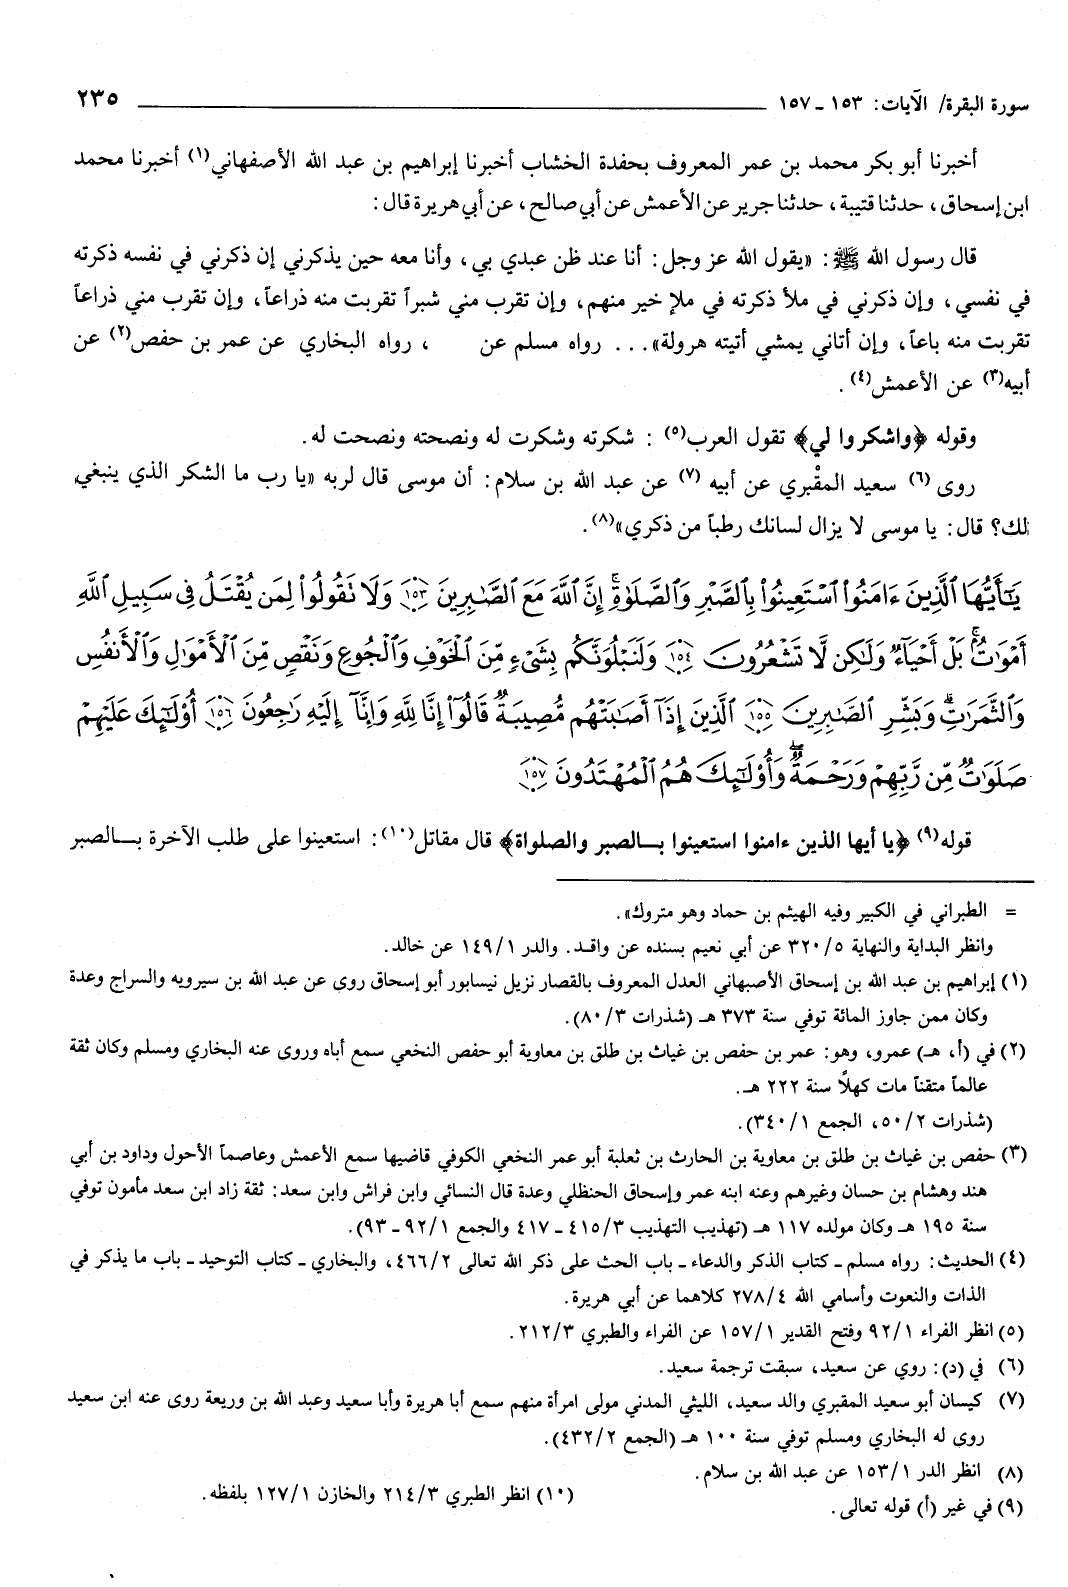 سورة البقرة/ الآيات: ١٥٣ ـ ١٥٧ ٢٣٥
أخبرنا أبو بكر محمد بن عمر المعروف بحفدة الخشاب أخبرنا إبراهيم بن عبد الله الأصفهاني(١) أخبرنا محمد
ابن إسحاق، حدثنا قتيبة، حدثنا جرير عن الأعمش عن أبي صالح، عن أبي هريرة قال:
قال رسول الله ﷺ: «يقول الله عز وجل: أنا عند ظن عبدي بي، وأنا معه حين يذكرني إن ذكرني في نفسه ذكرته
في نفسي، وإن ذكرني في ملأ ذكرته في ملإ خير منهم، وإن تقرب مني شبراً تقربت منه ذراعاً، وإن تقرب مني ذراعاً
تقربت منه باعاً، وإن أتاني يمشي أتيته هرولة»... رواه مسلم عن ، رواه البخاري عن عمر بن حفص(٢) عن
أبيه(٣) عن الأعمش(٤).
وقوله ﴿واشكروا لي﴾ تقول العرب(٥) : شكرته وشكرت له ونصحته ونصحت له.
روى(٦) سعيد المقْبري عن أبيه(٧) عن عبد الله بن سلام: أن موسى قال لربه «يا رب ما الشكر الذي ينبغي
لك؟ قال: يا موسى لا يزال لسانك رطباً من ذكري»(٨).
يَٰٓأَيُّهَا ٱلَّذِينَ ءَامَنُوا۟ ٱسْتَعِينُوا۟ بِٱلصَّبْرِ وَٱلصَّلَوٰةِ ۚ إِنَّ ٱللَّهَ مَعَ ٱلصَّٰبِرِينَ ١٥٣ وَلَا تَقُولُوا۟ لِمَن يُقْتَلُ فِى سَبِيلِ ٱللَّهِ
أَمْوَٰتٌۢ ۚ بَلْ أَحْيَآءٌ وَلَٰكِن لَّا تَشْعُرُونَ ١٥٤ وَلَنَبْلُوَنَّكُم بِشَىْءٍ مِّنَ ٱلْخَوْفِ وَٱلْجُوعِ وَنَقْصٍ مِّنَ ٱلْأَمْوَٰلِ وَٱلْأَنفُسِ
وَٱلثَّمَرَٰتِ ۗ وَبَشِّرِ ٱلصَّٰبِرِينَ ١٥٥ ٱلَّذِينَ إِذَآ أَصَٰبَتْهُم مُّصِيبَةٌ قَالُوٓا۟ إِنَّا لِلَّهِ وَإِنَّآ إِلَيْهِ رَٰجِعُونَ ١٥٦ أُو۟لَٰٓئِكَ عَلَيْهِمْ
صَلَوَٰتٌ مِّن رَّبِّهِمْ وَرَحْمَةٌ ۖ وَأُو۟لَٰٓئِكَ هُمُ ٱلْمُهْتَدُونَ ١٥٧
قوله(٩) ﴿يا أيها الذين ءامنوا استعينوا بـالصبر والصلواة﴾ قال مقاتل(١٠): استعينوا على طلب الآخرة بـالصبر
= الطبراني في الكبير وفيه الهيثم بن حماد وهو متروك».
وانظر البداية والنهاية ٣٢٠/٥ عن أبي نعيم بسنده عن واقد. والدر ١٤٩/١ عن خالد.
(١) إبراهيم بن عبد الله بن إسحاق الأصبهاني العدل المعروف بالقصار نزيل نيسابور أبو إسحاق روى عن عبد الله بن سيرويه والسراج وعدة
وكان ممن جاوز المائة توفي سنة ٣٧٣ هـ (شذرات ٨٠/٣).
(٢) في (أ، هـ) عمرو، وهو: عمر بن حفص بن غياث بن طلق بن معاوية أبو حفص النخعي سمع أباه وروى عنه البخاري ومسلم وكان ثقة
عالماً متقناً مات كهلاً سنة ٢٢٢ هـ.
(شذرات ٥٠/٢، الجمع ٣٤٠/١).
(٣) حفص بن غياث بن طلق بن معاوية بن الحارث بن ثعلبة أبو عمر النخعي الكوفي قاضيها سمع الأعمش وعاصماً الأحول وداود بن أبي
هند وهشام بن حسان وغيرهم وعنه ابنه عمر وإسحاق الحنظلي وعدة قال النسائي وابن فراش وابن سعد: ثقة زاد ابن سعد مأمون توفي
سنة ١٩٥ هـ وكان مولده ١١٧ هـ (تهذيب التهذيب ٤١٥/٣ ـ ٤١٧ والجمع ٩٢/١ ـ ٩٣).
(٤) الحديث: رواه مسلم ـ كتاب الذكر والدعاء ـ باب الحث على ذكر الله تعالى ٤٦٦/٢، والبخاري ـ كتاب التوحيد ـ باب ما يذكر في
الذات والنعوت وأسامي الله ٢٧٨/٤ كلاهما عن أبي هريرة.
(٥) انظر الفراء ٩٢/١ وفتح القدير ١٥٧/١ عن الفراء والطبري ٢١٢/٣.
(٦) في (د): روي عن سعيد، سبقت ترجمة سعيد.
(٧) كيسان أبو سعيد المقبري والد سعيد، الليثي المدني مولى امرأة منهم سمع أبا هريرة وأبا سعيد وعبد الله بن وريعة روى عنه ابن سعيد
روى له البخاري ومسلم توفي سنة ١٠٠ هـ (الجمع ٤٣٢/٢).
(٨) انظر الدر ١٥٣/١ عن عبد الله بن سلام.
(٩) في غير (أ) قوله تعالى.
(١٠) انظر الطبري ٢١٤/٣ والخازن ١٢٧/١ بلفظه.